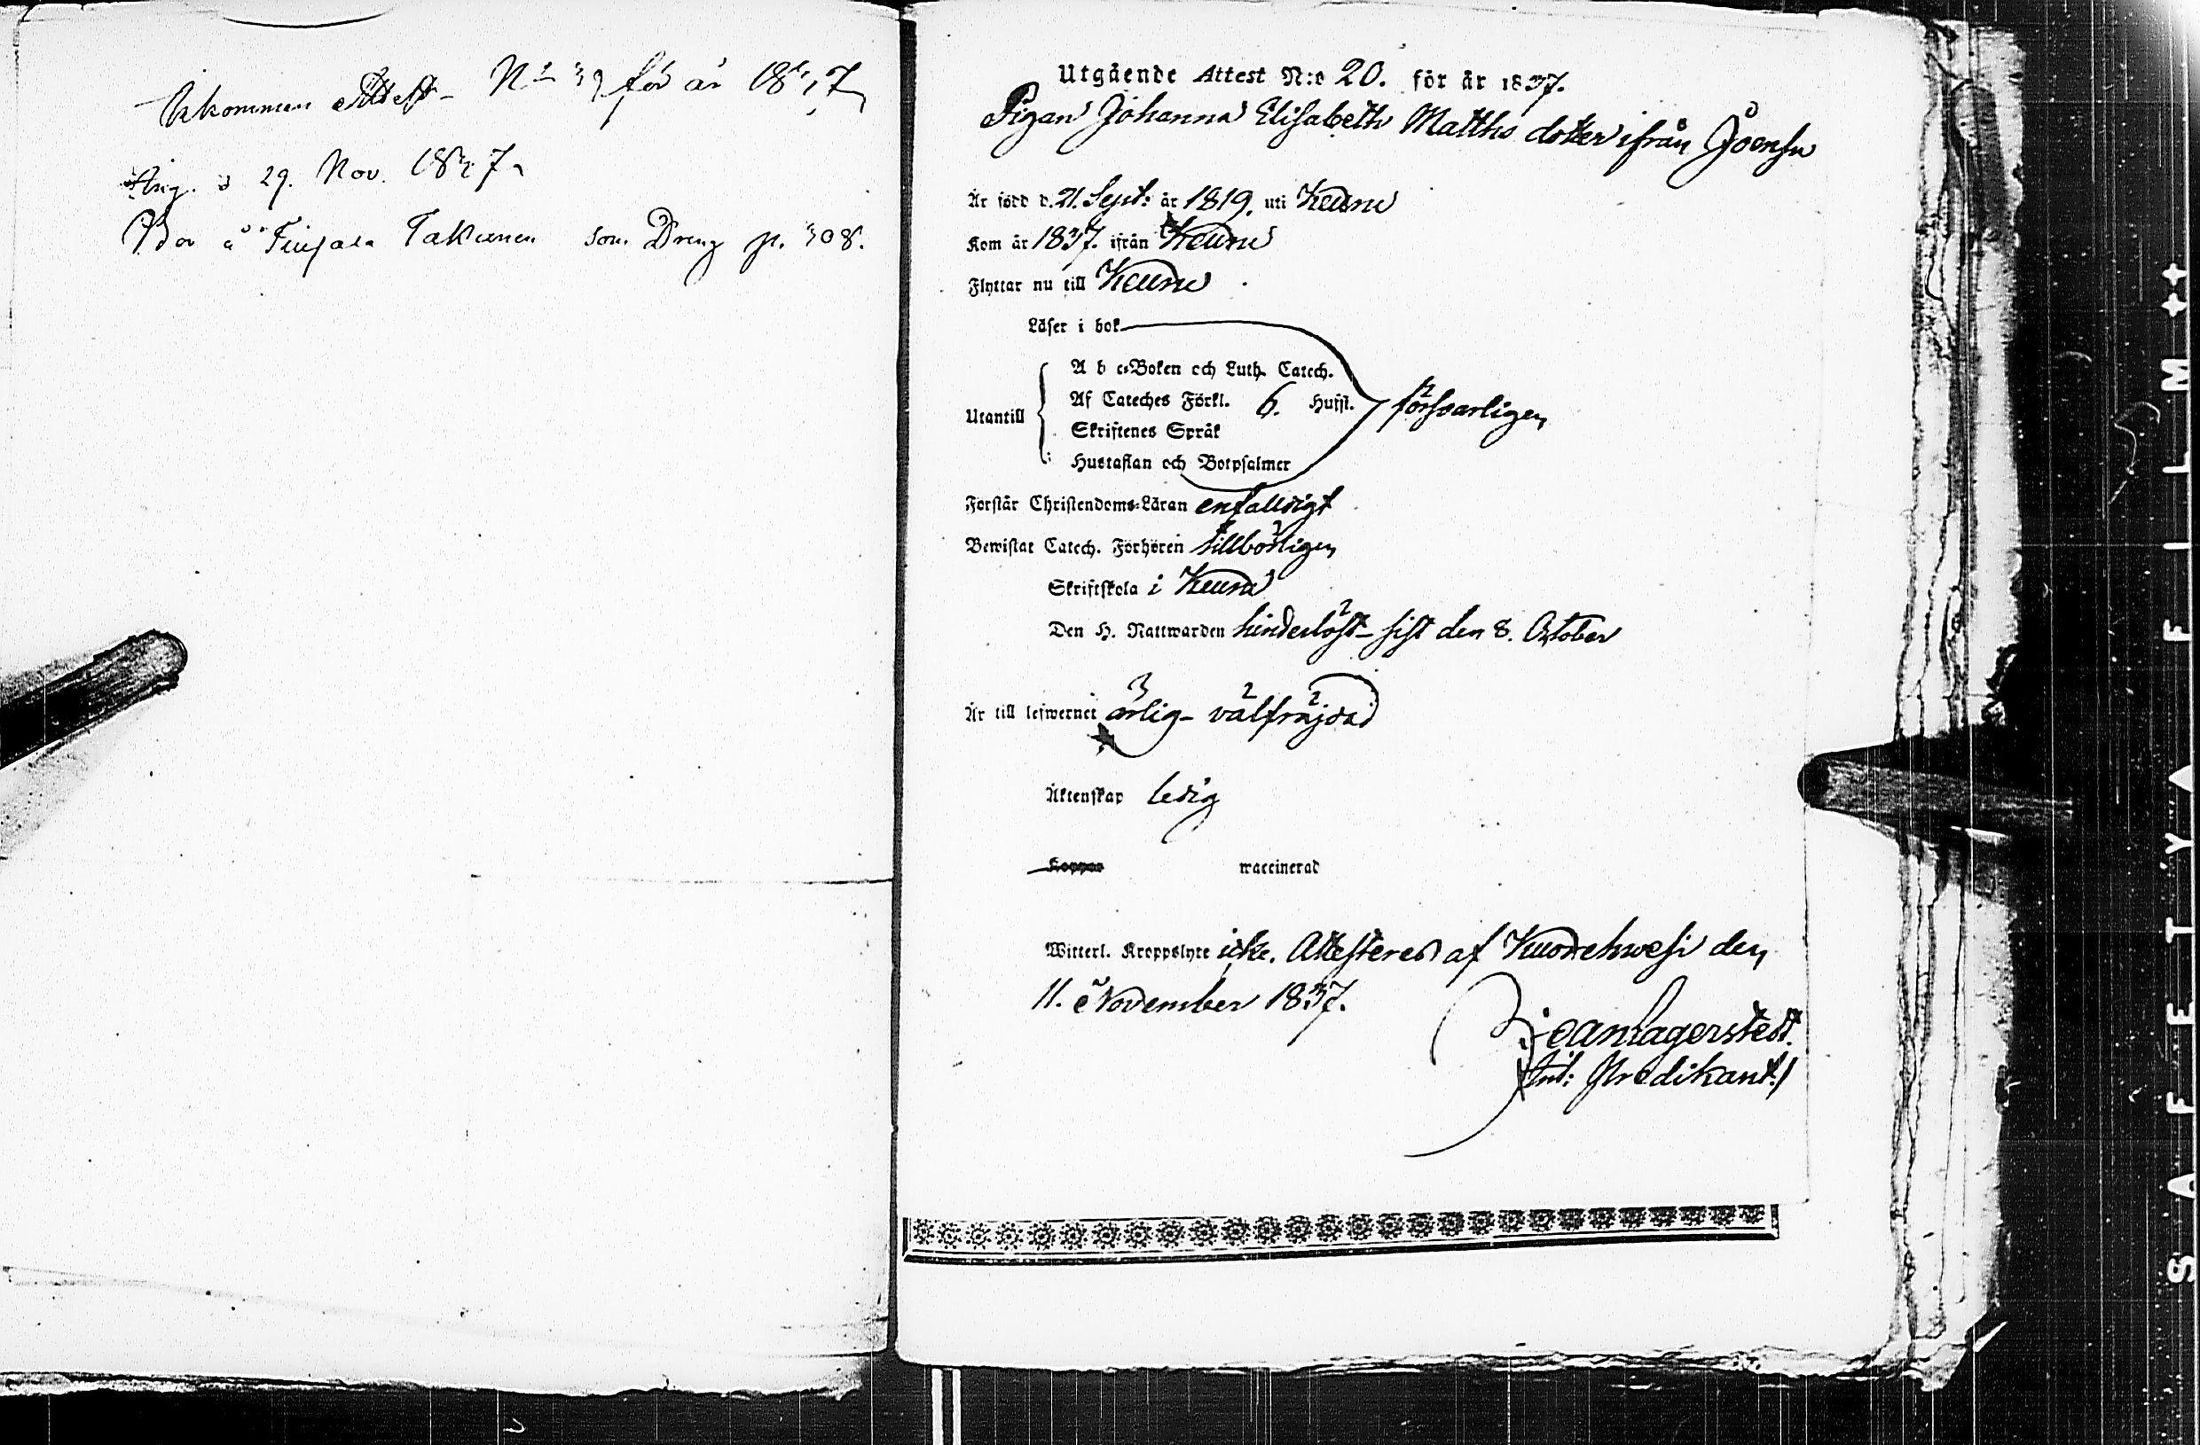 Inkommen Attest N:o 39 för år 1837
Ang. d 29. Nov. 1837
Bor å Tiusala Takunen som Dreng p. 308.
Utgående Attest N:o 20. för år 1837.
Pigan Johanna Elisabeth Matths doter ifrån Joensu
Är född d. 21. Sept: år 1819. uti Keuru
Kom år 1837. ifrån Keuru
Flyttar nu till Keuru
Läser i bok
A b c-Boken och Luth. Catech.
Af Cateches Förkl. 6. Hufst. försvarligen
Utantill
Skriftenes Språk
Hustaflan och Botpsalmer
Förstår Christendoms-Läran enfalldigt
Bewistat Catech. Förhören tillbörligen
Skriftskola i Keuru
Den H. Nattwarden hinderlöst - sist den 8. October
Är till lefwernet ärlig - välfräjdad
Äktenskap ledig
Koppor waccinerad
Witterl. Kroppslyte icke. Attesteras af Kuorehwesi den
11. November 1837.
Jean Lagerstedt.
Predikant.
SAFETY FILM